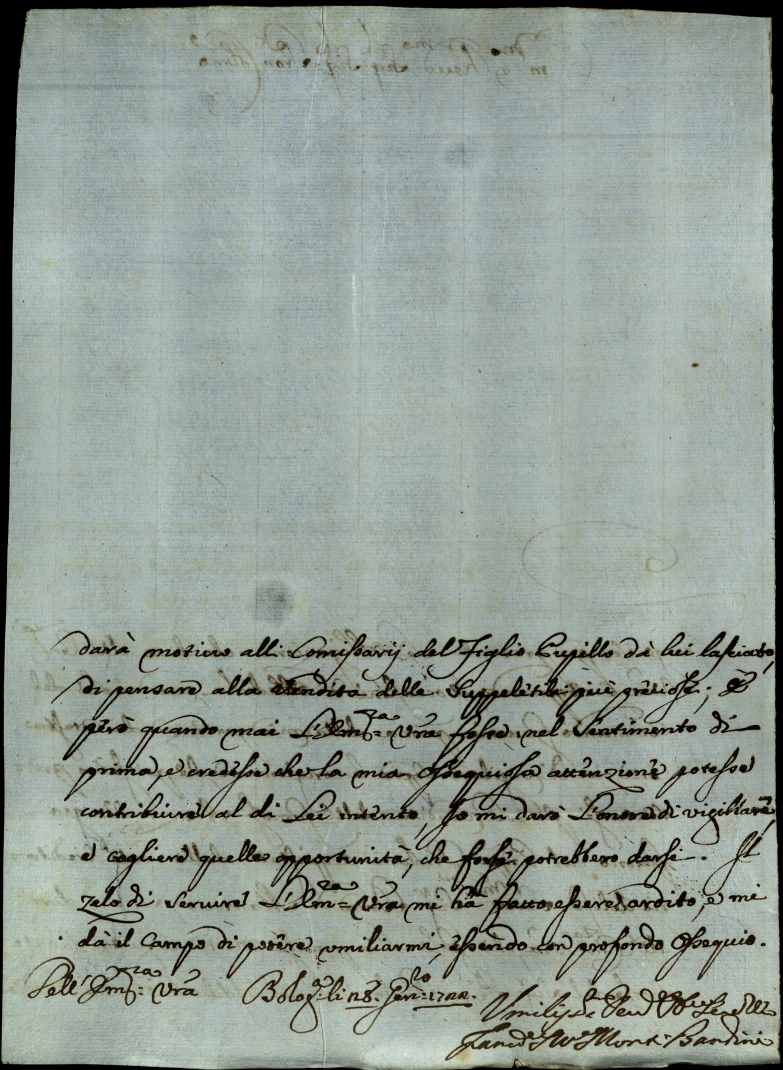 darà motivo alli Comissarij del Figlio Pupillo dà lui lasciato,
di pensare alla vendita delle Suppeletili più preciose; e
però quando mai L'Em:za Vrã fosse nel Sentimento di
prima, e credesse che la mia ossequiosa attenzione potesse
contribuire al di Lei intento, Io mi darò l'onore di vigillare,
e cogliere quelle opportunità, che forse potrebbero darsi. Il
zelo di servire L'Em:za Vrã mi hà fatto essere ardito, e mi
dà il Campo di potere umiliarmi, essendo con profondo Ossequio.
Dell' Em:za Vrã Bolog:a li 28. Gen:ro
Bandini